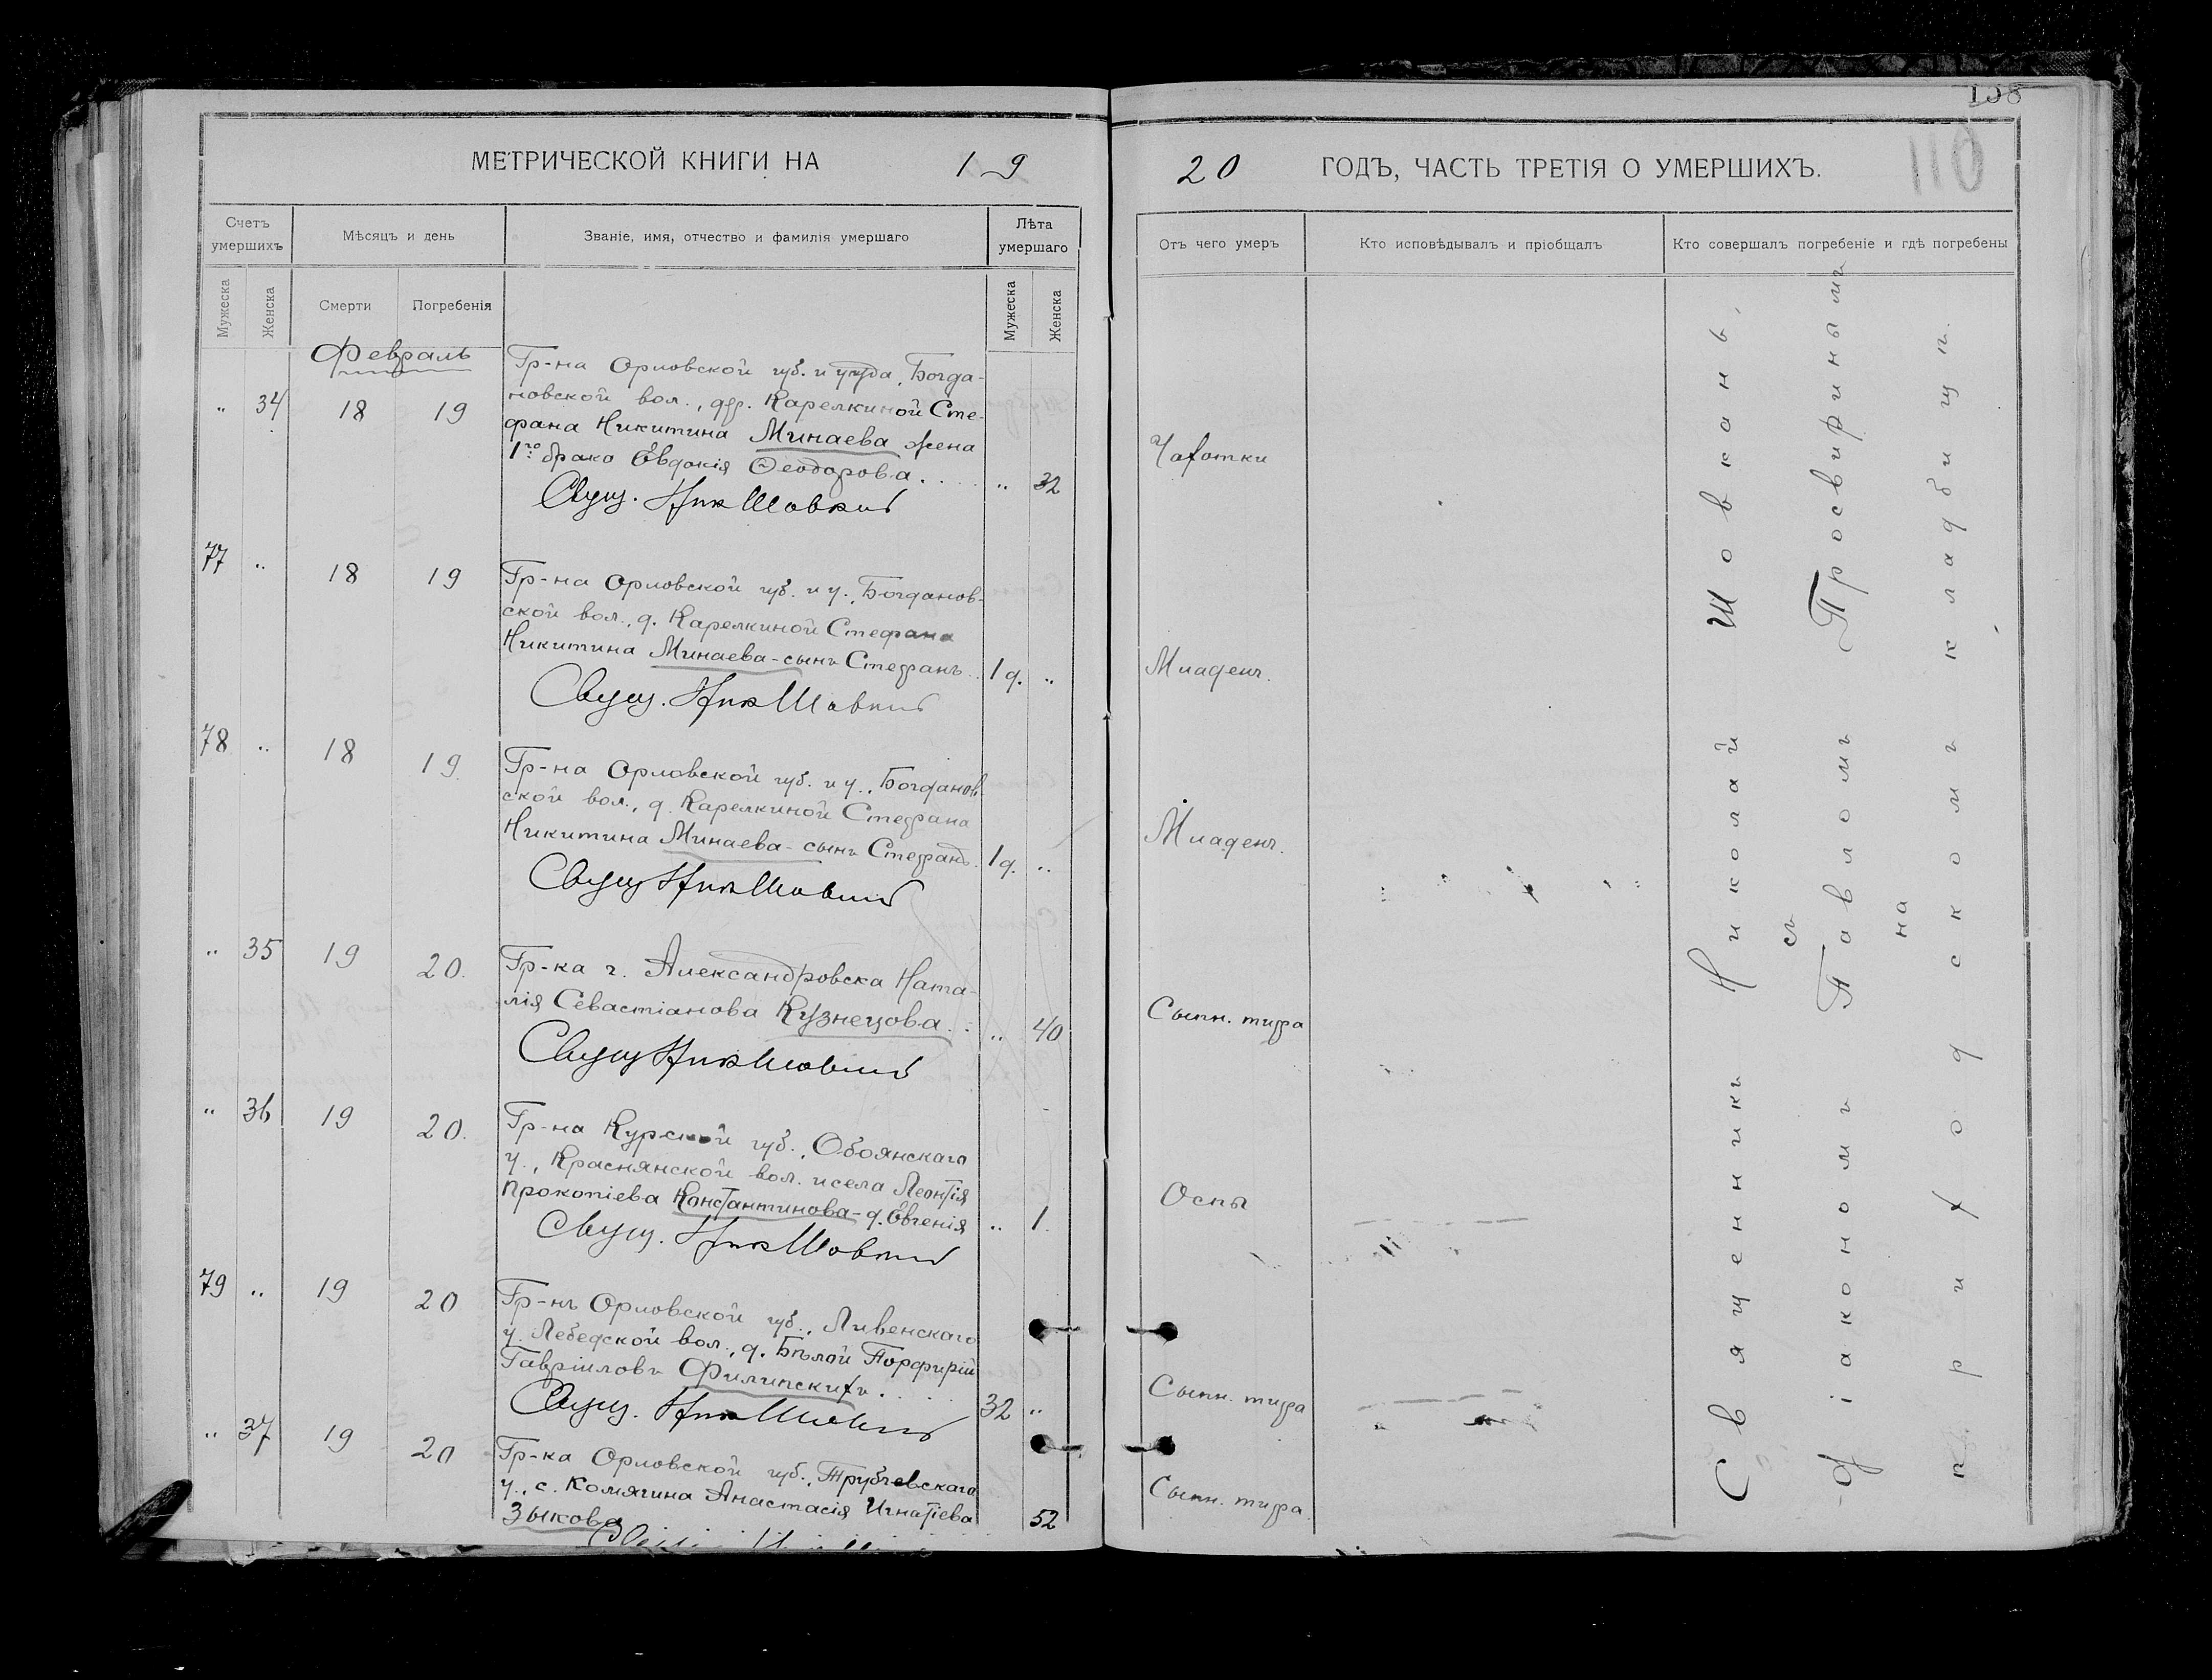 158
110
МЕТРИЧЕСКОЙ КНИГИ НА 19
20 ГОДЪ, ЧАСТЬ ТРЕТІЯ О УМЕРШИХЪ.
Счетъ умершихъ
Мѣсяцъ и день
Званіе, имя, отчество и фамилія умершаго
Лѣта умершаго
Мужеска
Женска
Смерти
Погребенія
Мужеска
Женска
Отъ чего умеръ
Кто исповѣдывалъ и пріобщалъ
Кто совершалъ погребеніе и гдѣ погребены
Февраль
„ 34 18 19
Гр-на Орловской губ. и уѣзда, Богда-
новской вол., дер. Карелкиной Сте-
фана Никитина Минаева жена
1го брака Евдокія Ѳеодорова.... „ 32
Свущ. Ник Шовкан
Чахотки
77 „ 18 19
Гр-на Орловской губ. и у., Богданов-
ской вол., д. Карелкиной Стефана
Никитина Минаева - сынъ Стефанъ.. 1 д. „
Свущ. Ник Шовкан
Младенч.
78 „ 18 19.
Гр-на Орловской губ. и у., Богданов
ской вол., д. Карелкиной Стефана
Никитина Минаева - сынъ Стефанъ. 1 д. „
Свущ Ник Шовкан
Младенч.
„ 35 19 20.
Гр-ка г. Александровска Ната-
лія Севастіанова Кузнецова.. „ 40
Свущ Ник Шовкан
Сыпн. тифа
„ 36 19 20.
Гр-на Курской губ., Обоянскаго
у., Краснянской вол. и села Леонтія
Прокопіева Константинова - д. Евгенія „ 1.
Свущ. Ник Шовкан
Оспы
79 „ 19 20
Гр-нъ Орловской губ., Ливенскаго
у. Лебедской вол., д. Бѣлой Порфирій
Гавріиловъ Филипскихъ... 32 „
Свущ. Ник Шовкан
Сыпн. тифа
„ 37 19 20
Гр-ка Орловской губ., Трубчевскаго
у., с. Комягина Анастасія Игнатіева
Зыкова 52
Сыпн. тифа
Священникъ Николай Шовканъ,
съ
діакономъ Павломъ Просвиринымъ
на
приходскомъ кладбищѣ.